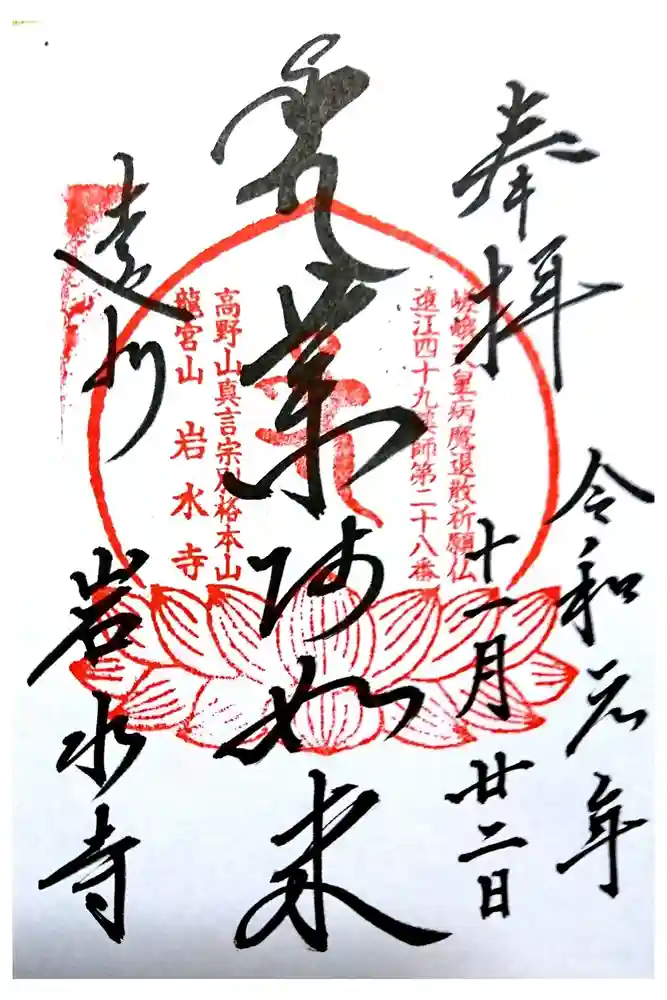 奉拝
令和元年
十一月廿二日
嵯峨天皇病魔退散祈願仏
遠江四十九薬師第二十八番
薬師如来
高野山真言宗別格本山
龍宮山 岩水寺
遠州
岩水寺